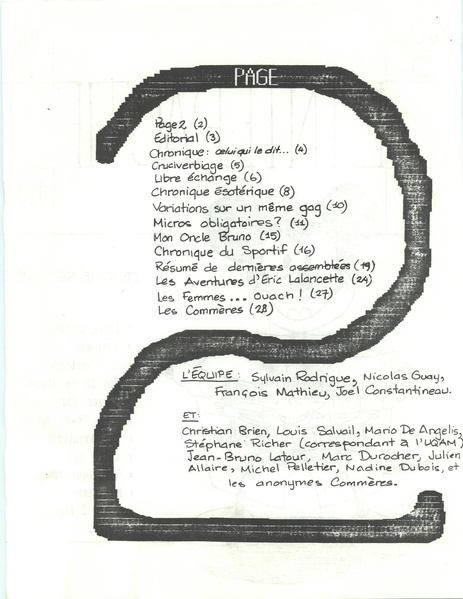 PAGE
Page 2 (2)
Éditorial (3)
Chronique: celui qui le dit... (4)
Cruciverbiage (5)
Libre échange (6)
Chronique ésotérique (8)
Variations sur un même gag (10)
Micros obligatoires? (11)
Mon Oncle Bruno (15)
Chronique du Sportif (16)
Résumé de dernières assemblées (19)
Les Aventures d'Eric Lalancette (24)
Les Femmes... Ouach! (27)
Les Commères (28)
L'ÉQUIPE: Sylvain Rodrigue, Nicolas Guay,
François Mathieu, Joël Constantineau.
ET:
Christian Brien, Louis Salvail, Mario De Angelis,
Stéphane Richer (correspondant à l'UQAM)
Jean-Bruno Latour, Marc Durocher, Julien
Allaire, Michel Pelletier, Nadine Dubois, et
les anonymes Commères.